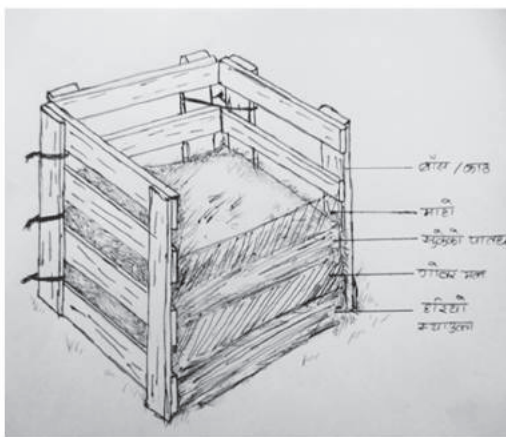 बाँस / काठ
माटो
सुकेको पातहरू
गोबर मल
हरियो
स्याउला